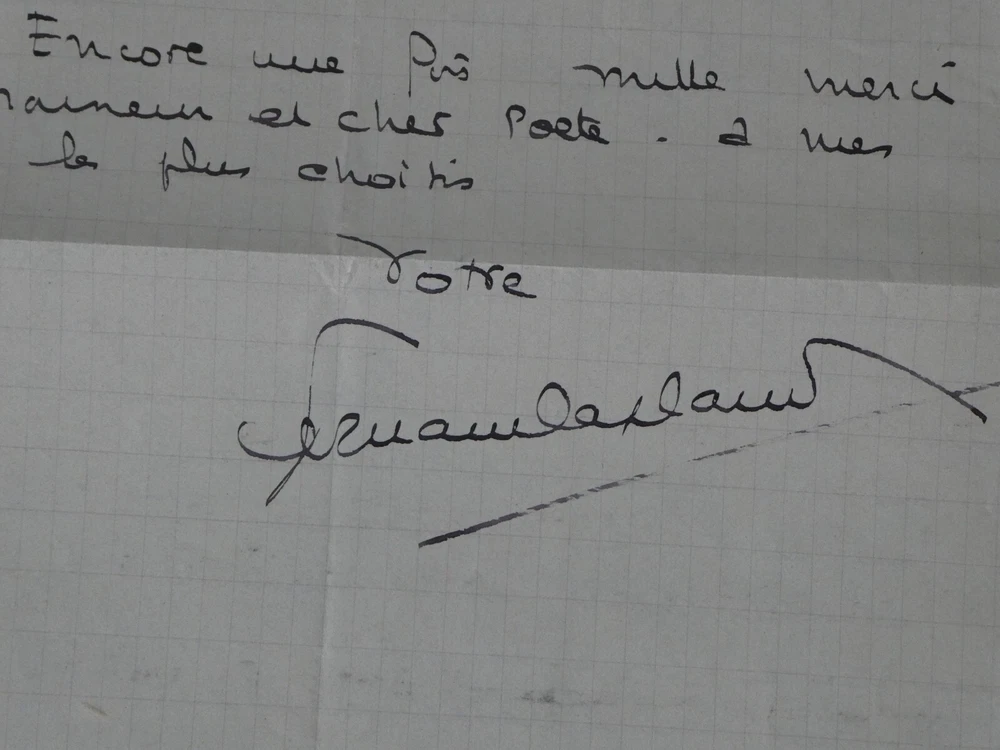 Encore une fois mille merci
et cher Poete . à mes
les plus choisis
Votre